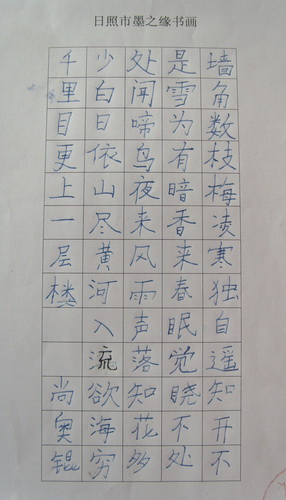 日照市墨之缘书画
墙角数枝梅凌寒独自遥知开不
是雪为有暗香来春眠觉晓不处
处闻啼鸟夜来风雨声落知花多
少白日依山尽黄河入流欲海穷
千里目更上一层楼
尚奥锟